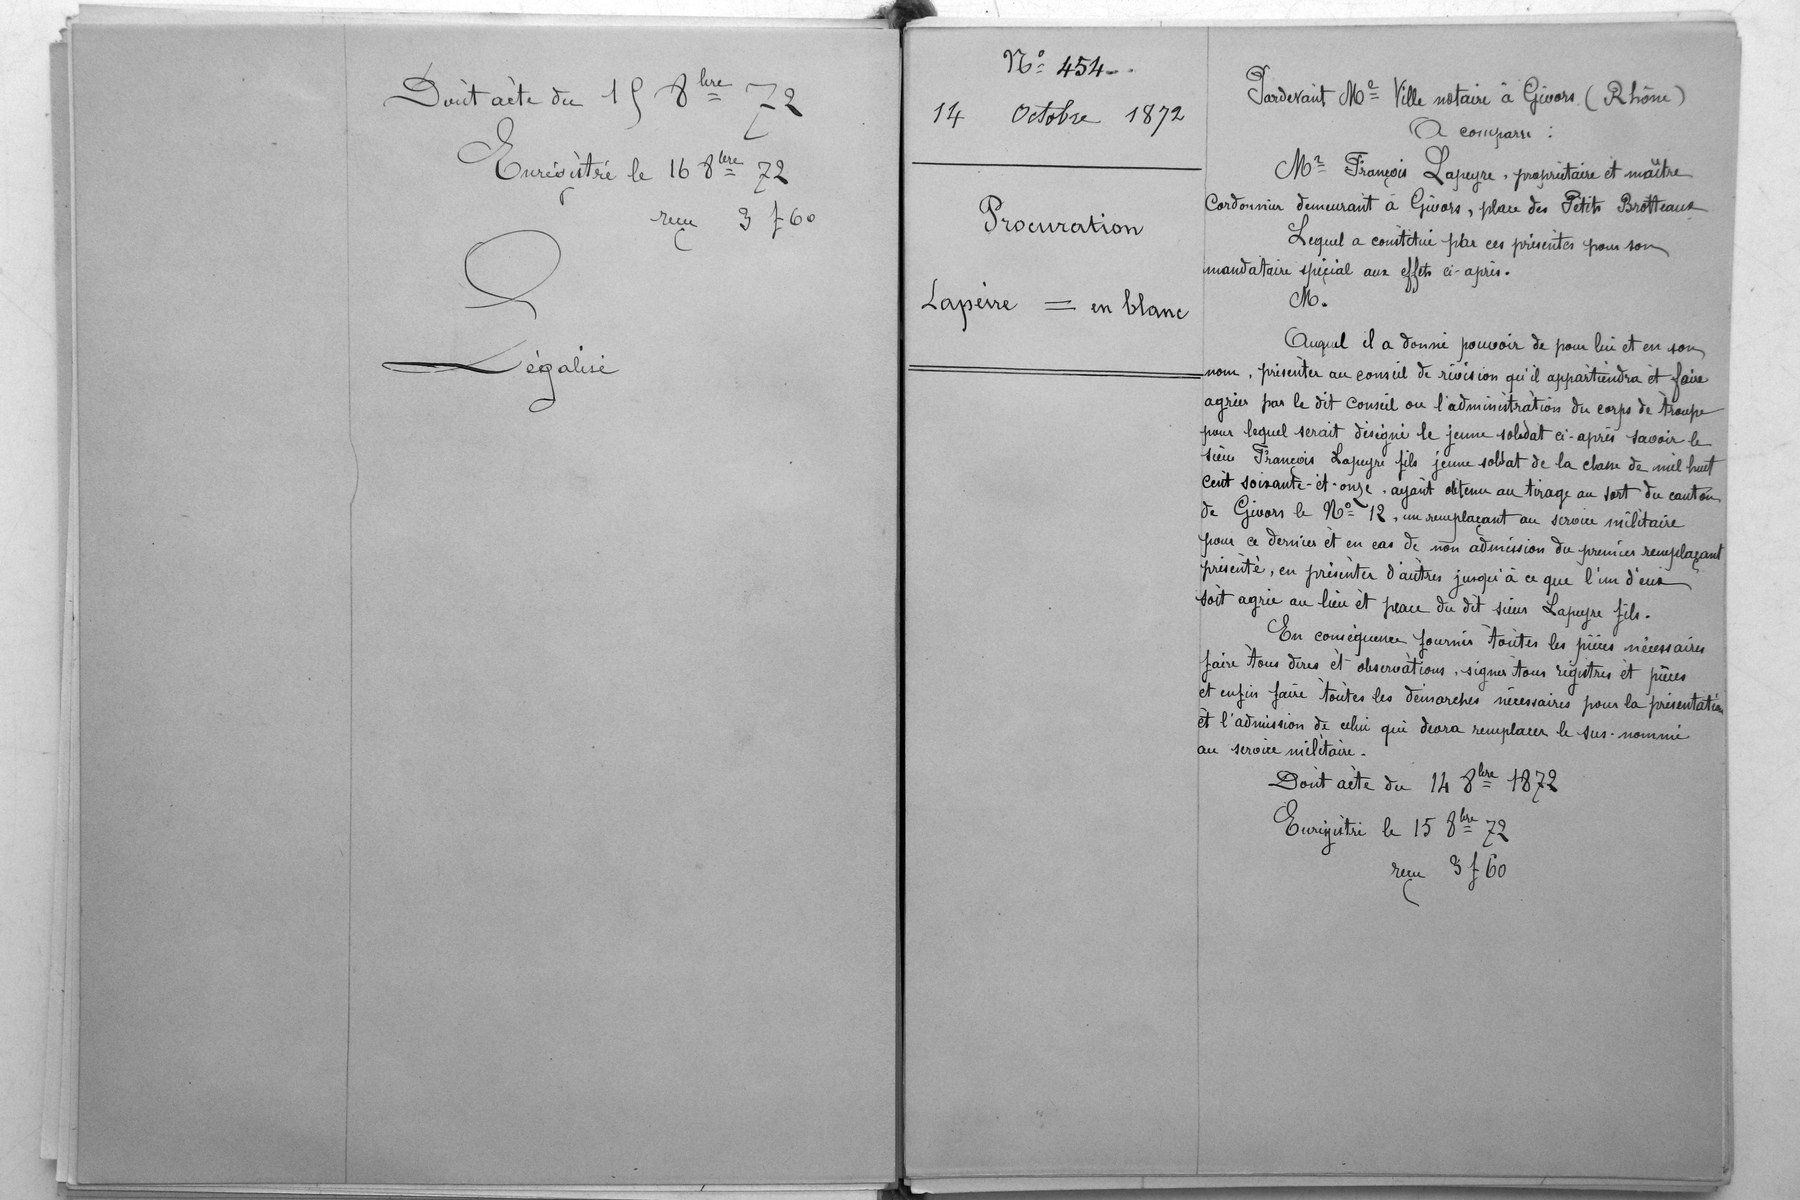 Dont acte du 15 8bre 72
Enregistré le 16 8bre 72
reçu 3 f 60
Légalisé
No 454
14 Octobre 1872
Procuration
Lapeire = en blanc
Pardevant Me Ville notaire à Givors (Rhône)
A comparu :
Mr François Lapeyre, propriétaire et maître
Cordonnier demeurant à Givors, place des Petits Brotteaux
Lequel a constitué par ces présentes pour son
mandataire spécial aux effets ci-après.
M.
Auquel il a donné pouvoir de pour lui et en son
nom, présenter au conseil de révision qu'il appartiendra et faire
agréer par le dit Conseil ou l'administration du corps de troupe
pour lequel serait désigné le jeune soldat ci-après savoir le
sieur François Lapeyre fils jeune soldat de la classe de mil huit
cent soixante-et-onze, ayant obtenu au tirage au sort du canton
de Givors le No 12, un remplaçant au service militaire
pour ce dernier et en cas de non admission du premier remplaçant
présenté, en présenter d'autres jusqu'à ce que l'un d'eux
soit agrée au lieu et place du dit sieur Lapeyre fils.
En conséquence fournir toutes les pièces nécessaires
faire tous dires et observations, signer tous registres et pièces
et enfin faire toutes les démarches nécessaires pour la présentation
et l'admission de celui qui devra remplacer le sus-nommé
au service militaire.
Dont acte du 14 8bre 1872
Enregistré le 15 8bre 72
reçu 3 f 60